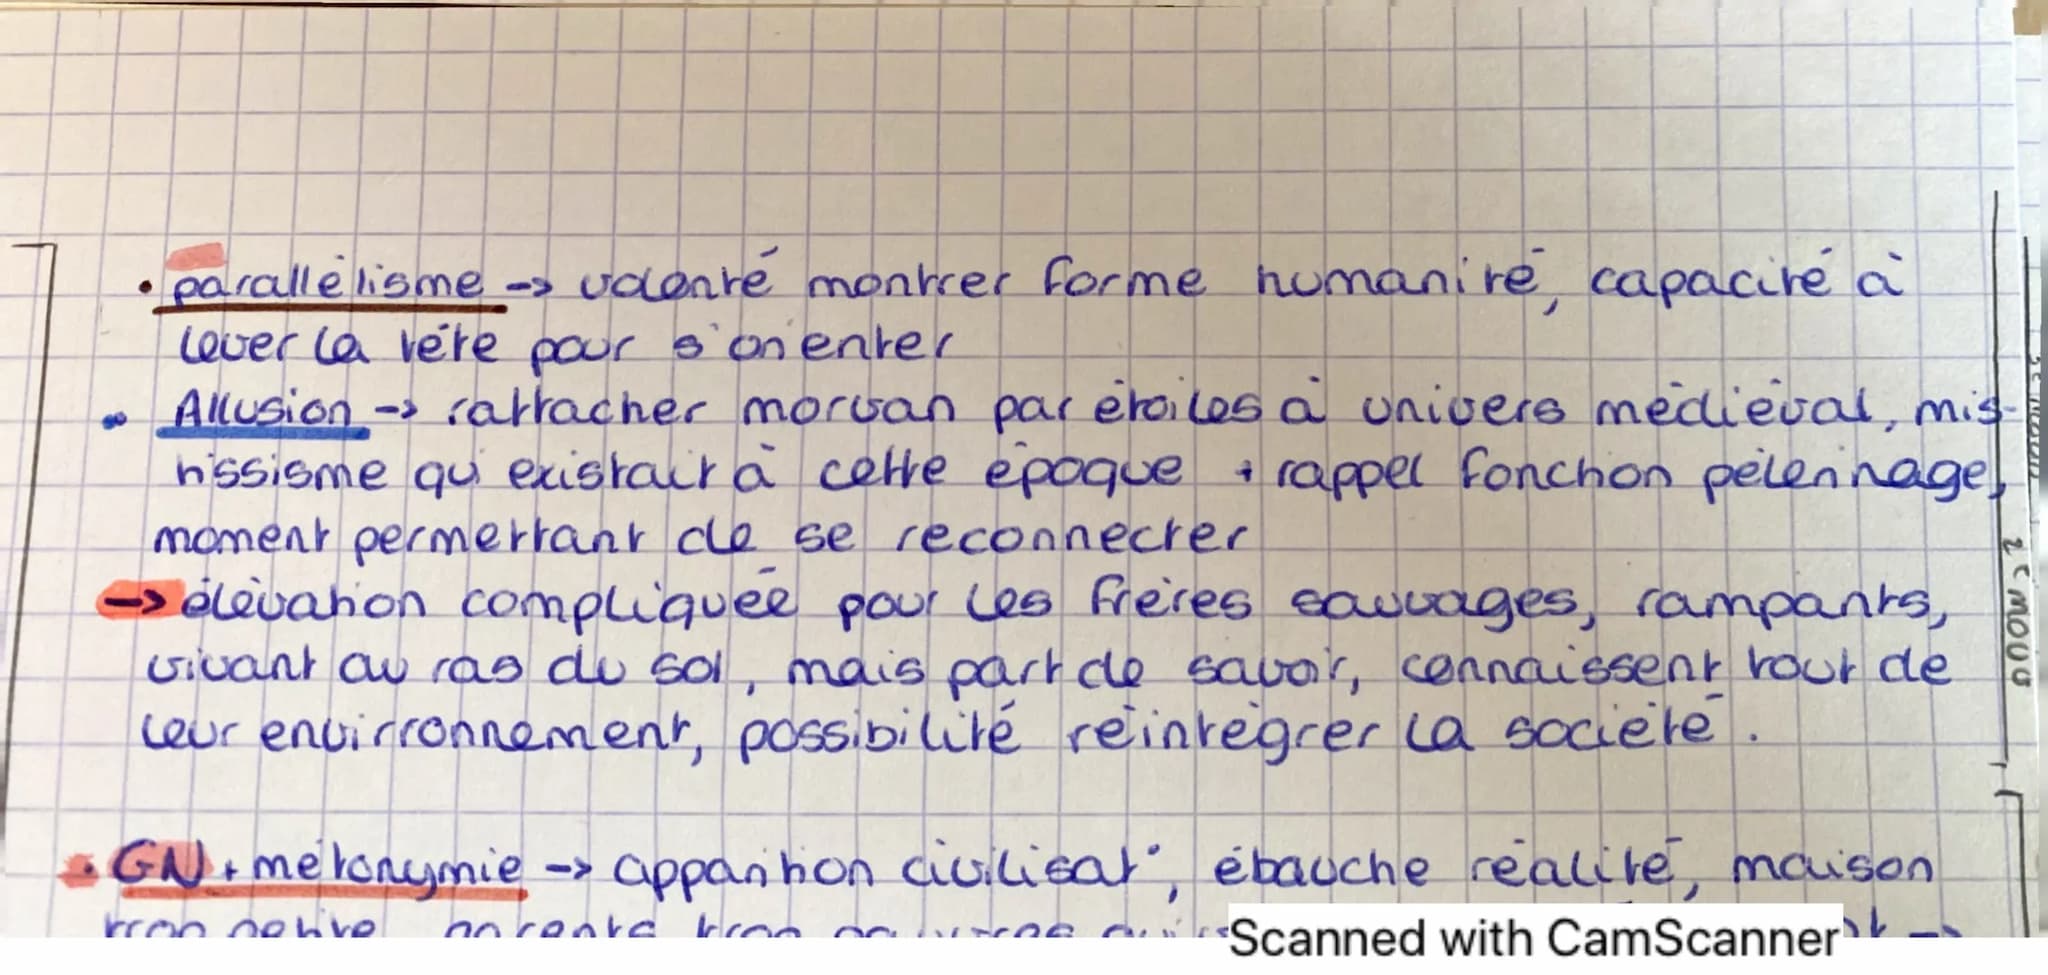 • parallélisme -> volonté montrer forme humanité, capacité à
lever la tête pour s'orienter
• Allusion -> rattacher morvan par étoiles à univers médiéval, mis-
tissisme qui existait à cette époque + rappel fonction pélerinage,
moment permettant de se reconnecter
-> élévation compliquée pour les frères sauvages, rampants,
vivant au ras du sol, mais part de savoir, connaissent tout de
leur envirronnement, possibilité réintégrer la société.
2e mouv
• GN + métonymie -> apparition civilisat°, ébauche réalité, maison
trop petite, parents trop
Scanned with CamScanner